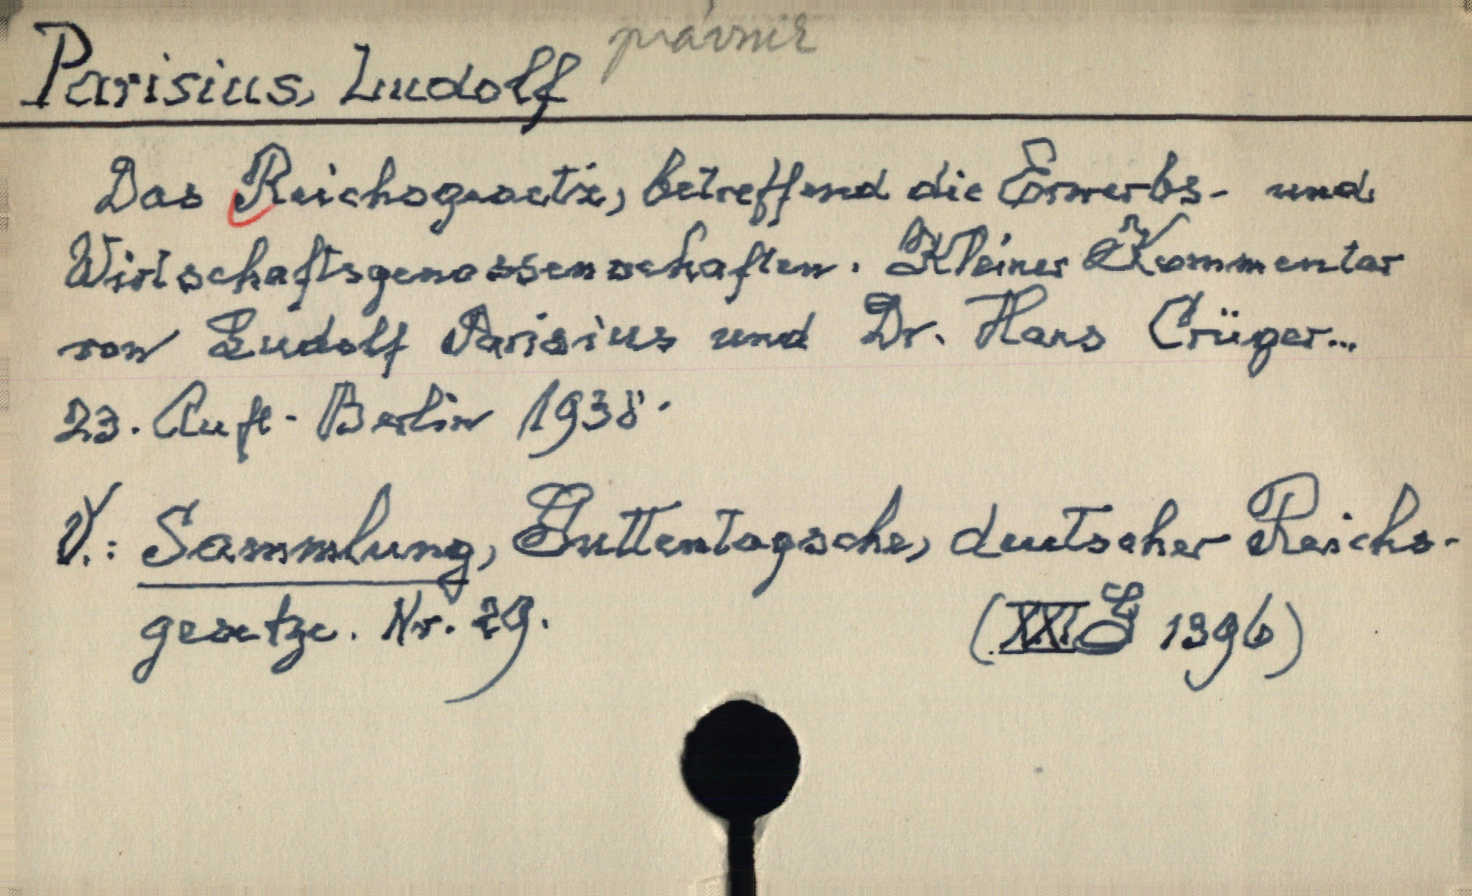 právník
Parisius, Ludolf
Das Reichsgesetz, betreffend die Erwerbs- und
Wirtschaftsgenossenschaften. Kleiner Kommentar
von Ludolf Parisius und Dr. Hans Crüger...
23. Aufl. Berlin 1938.
V.: Sammlung, Guttentagsche, deutscher Reichs-
gesetze. Nr. 29.
(XXI 1396)